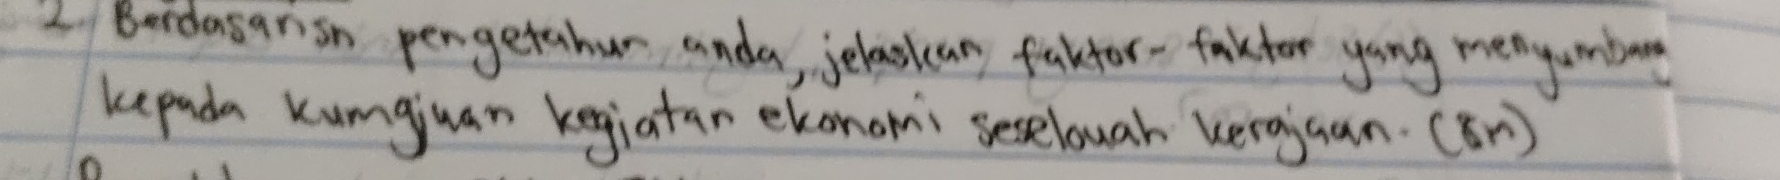 2. Berdasarisn pengetahun anda, jelaskan faktor-faktor yang menyumbang
kepada kumajuan kegiatan ekonomi seselouah kerajaan. (8m)